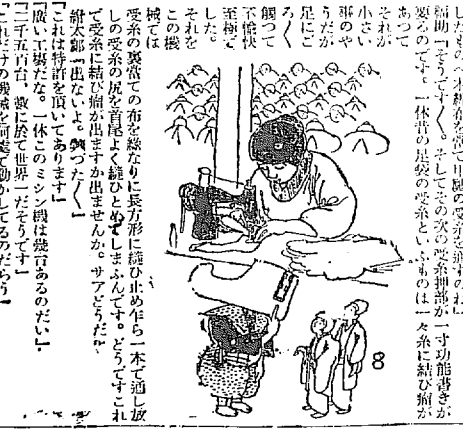 福助『そうです〱。そしてその次の受糸押部が一寸功能書きが
要るのです。一体昔の足袋の受糸といふものは一々糸に結び瘤が
あつて
それが
小さい
事のや
うだが
足にご
ろ〱
觸つて
不愉快
至極で
した。
それを
この機
械では
受糸の裏當ての布を縁なりに長方形に縫ひ止め乍ら一本で通し放
しの受糸の尻を首尾よく縫ひとめてしまふんです。どうですこれ
で受糸に結び瘤が出ますか出ませんか。サアどうだね
紺太郎『出ないよ。
『これは特許を頂いてあります』
『廣い工場だな。一体このミシン機は幾台あるのだい』
『二千五百台、數に於て世界一ださうです』
『これだけの機械を何處で動かしてるのだらう』
8